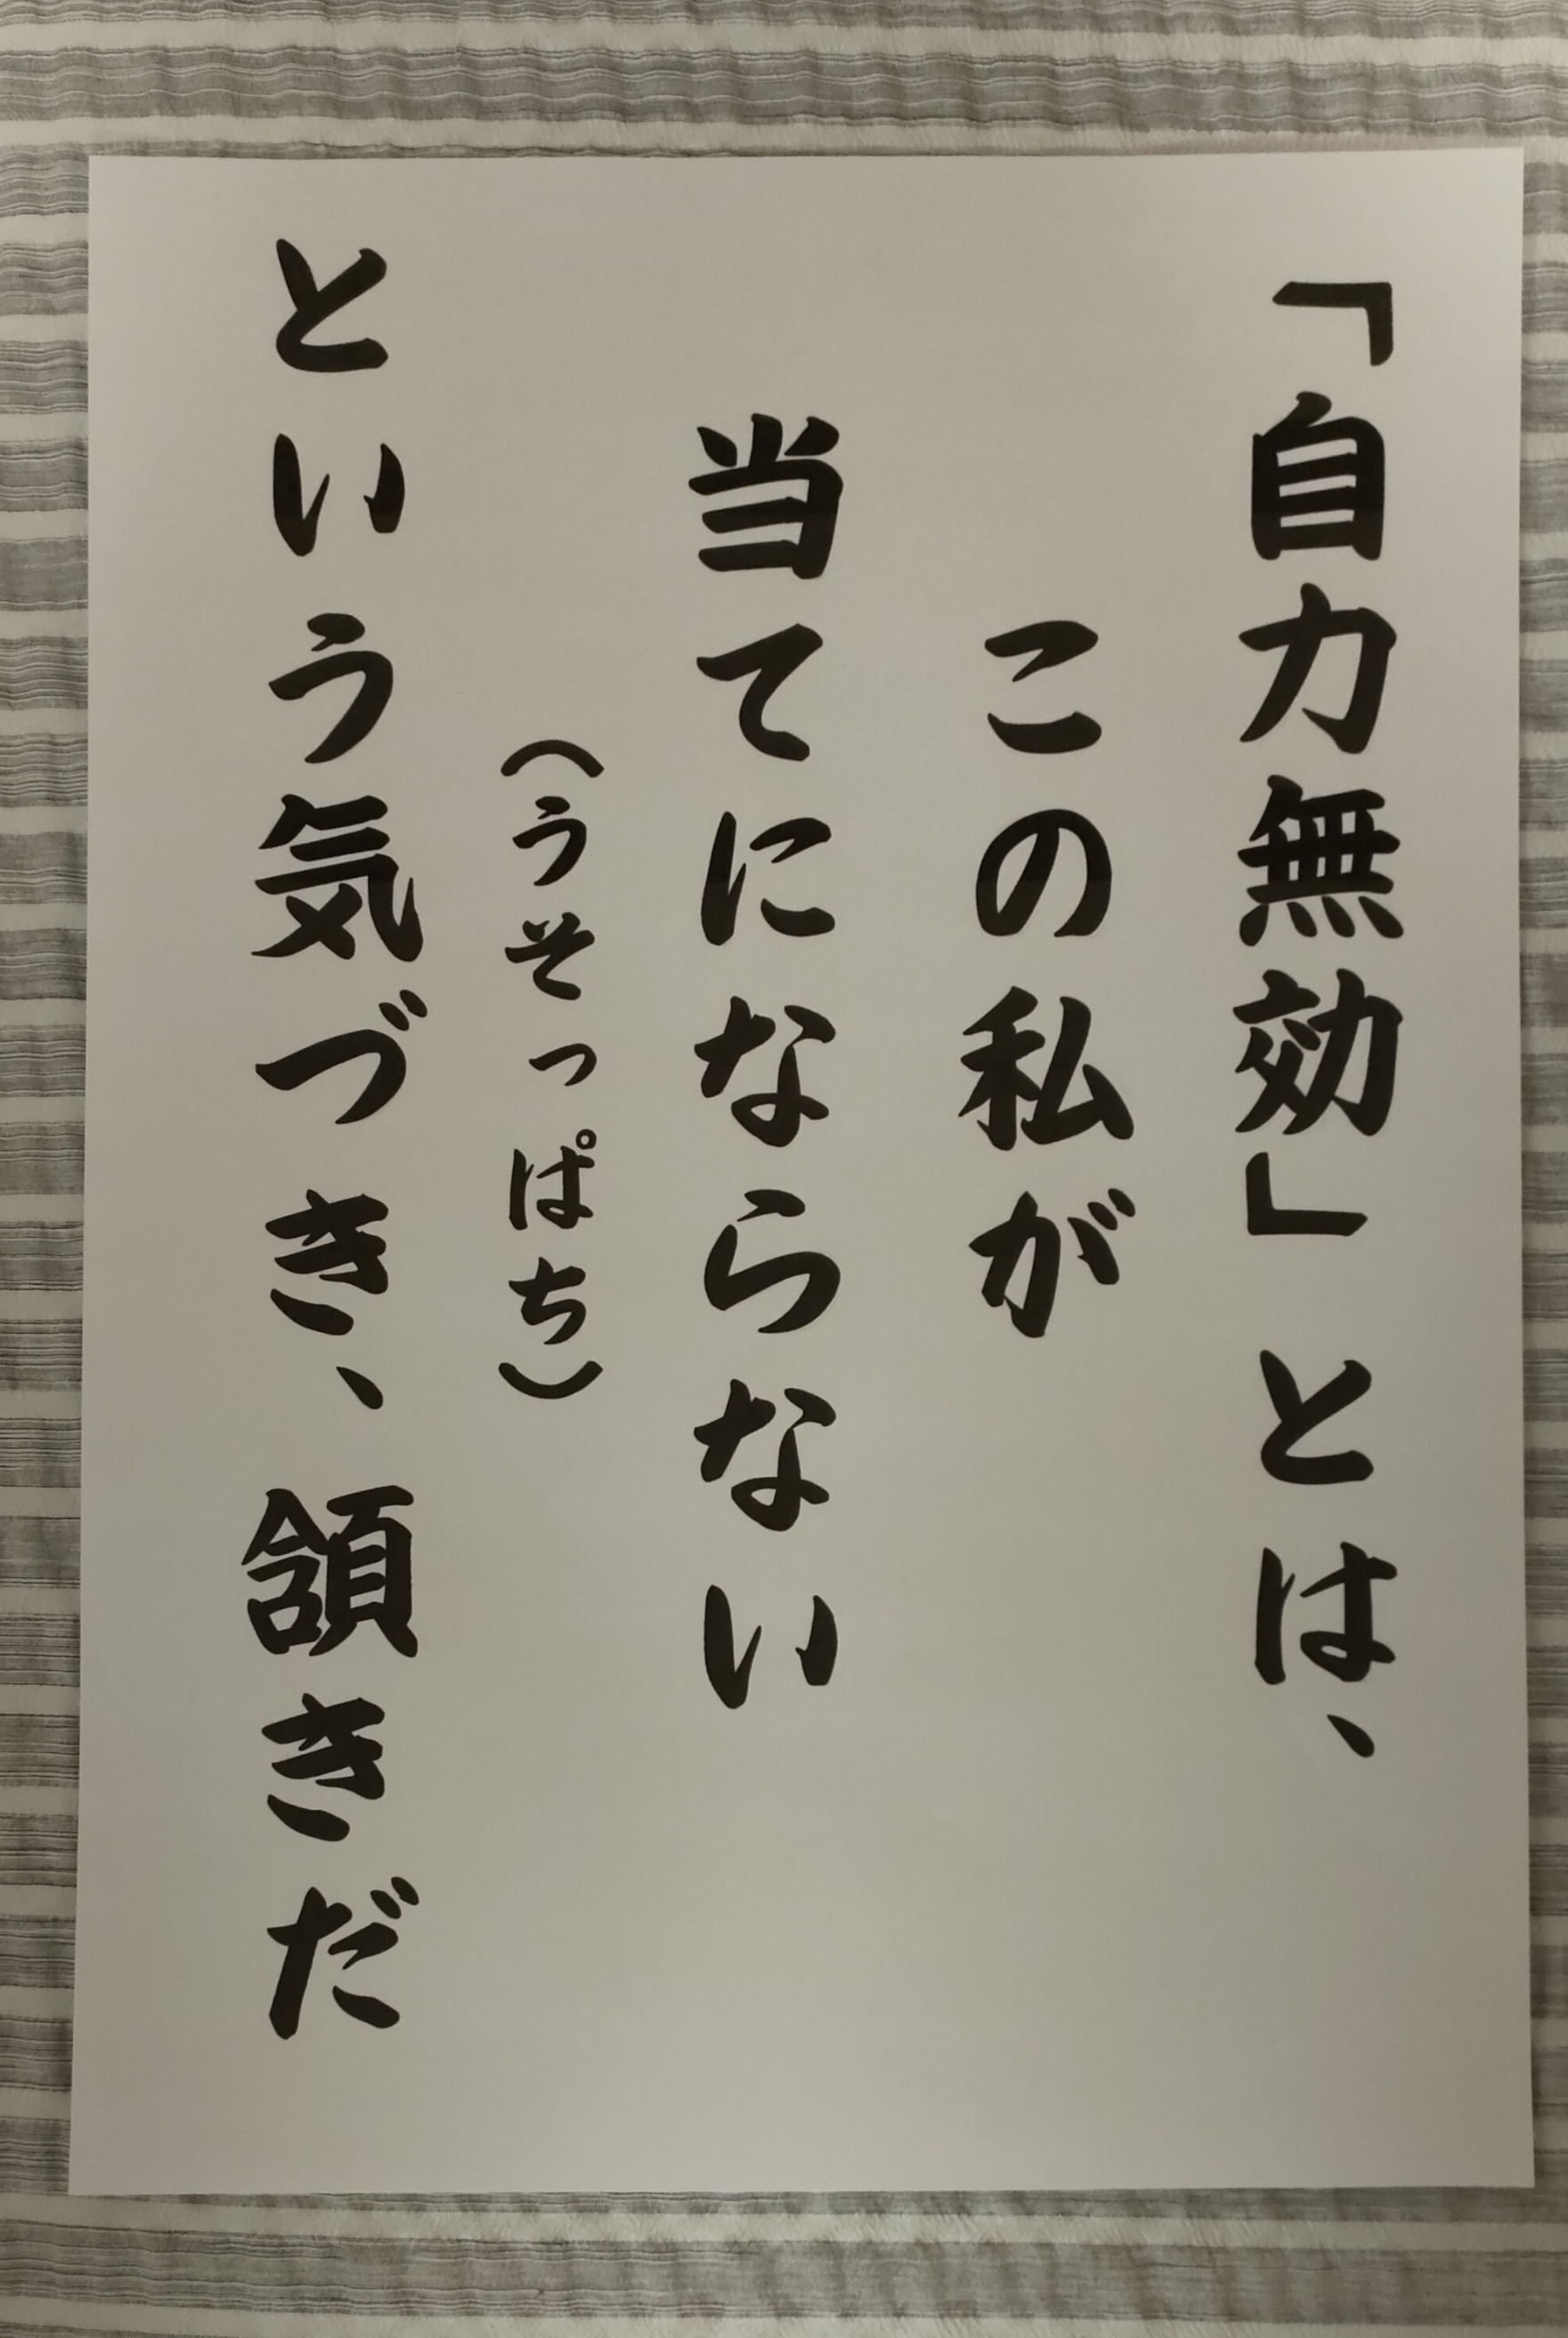 「自力無効」とは、
この私が
当てにならない
（うそっぱち）
という気づき、頷きだ